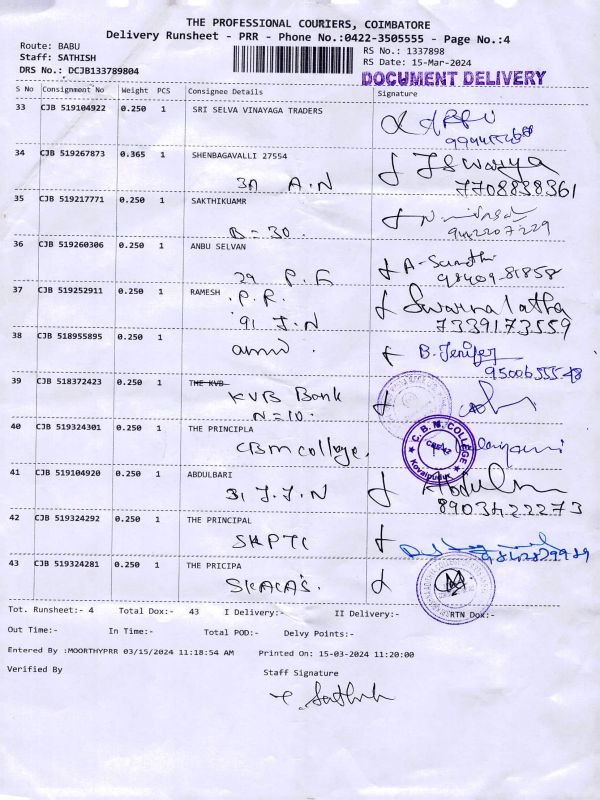 THE PROFESSIONAL COURIERS, COIMBATORE
Delivery Runsheet - PRR - Phone No.:0422-3505555 - Page No.:4
Route: BABU
Staff: SATHISH
DRS No.: DCJB133789804
RS No.: 1337898
RS Date: 15-Mar-2024
DOCUMENT DELIVERY
S No Consignment No Weight PCS Consignee Details Signature
33 CJB 519104922 0.250 1 SRI SELVA VINAYAGA TRADERS
34 CJB 519267873 0.365 1 SHENBAGAVALLI 27554
3A A.N
7708838361
35 CJB 519217771 0.250 1 SAKTHIKUAMR
B = 30
9442207229
36 CJB 519260306 0.250 1 ANBU SELVAN
29 P.G
98409-81858
37 CJB 519252911 0.250 1 RAMESH . P.R.
91 J.N
Swarna latha
7339173559
38 CJB 518955895 0.250 1
B. Jenifer
39 CJB 518372423 0.250 1 THE KVB
KVB Bank
N=10.
40 CJB 519324301 0.250 1 THE PRINCIPLA
CBM college.
C.B.M. COLLEGE
Kovaipudur
41 CJB 519104920 0.250 1 ABDULBARI
31 J.J.N
8903422273
42 CJB 519324292 0.250 1 THE PRINCIPAL
SKPTC
43 CJB 519324281 0.250 1 THE PRICIPA
SKACAS.
Tot. Runsheet:- 4 Total Dox:- 43 I Delivery:- II Delivery:- RTN Dox:-
Out Time:- In Time:- Total POD:- Delvy Points:-
Entered By :MOORTHYPRR 03/15/2024 11:18:54 AM Printed On: 15-03-2024 11:20:00
Verified By Staff Signature